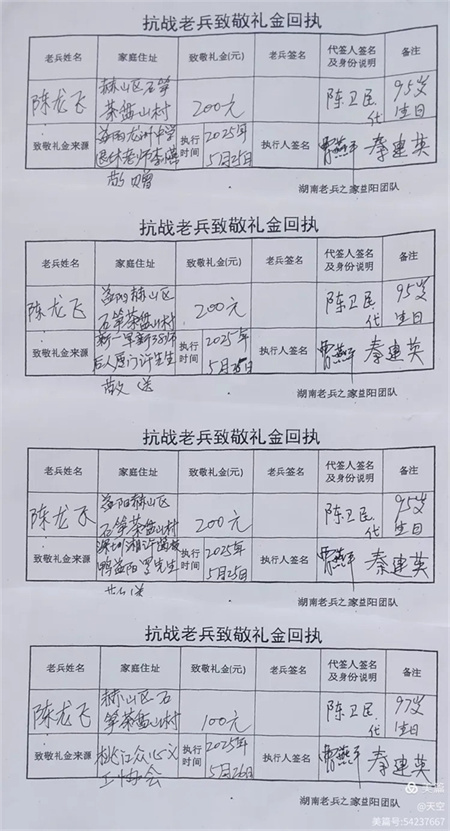 抗战老兵致敬礼金回执
老兵姓名 家庭住址 致敬礼金(元) 老兵签名 代签人签名及身份说明 备注
陈龙飞 赫山区石笋茶盘山村 200元 陈卫民代 95岁生日
致敬礼金来源 益阳龙洲中学退休老师李 执行时间 2025年5月25日 执行人签名 曹燕平 秦建英
敬赠
湖南老兵之家益阳团队
抗战老兵致敬礼金回执
老兵姓名 家庭住址 致敬礼金(元) 老兵签名 代签人签名及身份说明 备注
陈龙飞 益阳赫山区石笋茶盘山村 200元 陈卫民代 95岁生日
致敬礼金来源 新一军新38师后人厦门许先生 执行时间 2025年5月25日 执行人签名 曹燕平 秦建英
敬送
湖南老兵之家益阳团队
抗战老兵致敬礼金回执
老兵姓名 家庭住址 致敬礼金(元) 老兵签名 代签人签名及身份说明 备注
陈龙飞 益阳赫山区石笋茶盘山村 200元 陈卫民代 95岁生日
致敬礼金来源 深圳湘许鸭益阳罗先生 执行时间 2025年5月25日 执行人签名 曹燕平 秦建英
敬送
湖南老兵之家益阳团队
抗战老兵致敬礼金回执
老兵姓名 家庭住址 致敬礼金(元) 老兵签名 代签人签名及身份说明 备注
陈龙飞 赫山区石笋茶盘山村 100元 陈卫民代 97岁生日
致敬礼金来源 桃江众心义工协会 执行时间 2025年5月26日 执行人签名 曹燕平 秦建英
湖南老兵之家益阳团队
美篇
@天空
美篇号:54237667